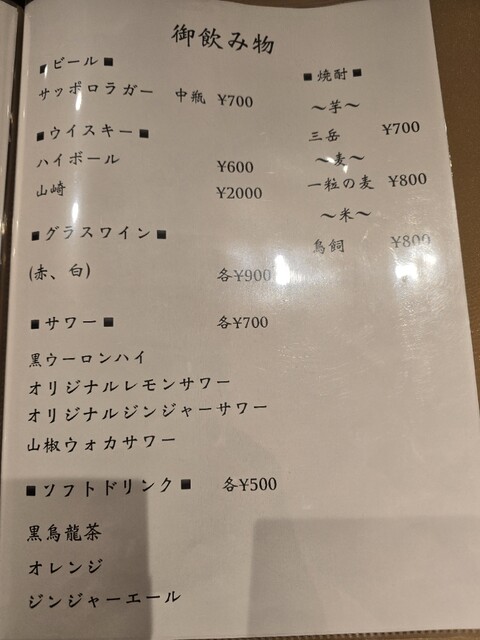 御飲み物
■ビール■
サッポロラガー 中瓶 ¥700
■ウイスキー■
ハイボール ¥600
山崎 ¥2000
■グラスワイン■
(赤、白) 各¥900
■サワー■ 各¥700
黒ウーロンハイ
オリジナルレモンサワー
オリジナルジンジャーサワー
山椒ウォカサワー
■ソフトドリンク■ 各¥500
黒烏龍茶
オレンジ
ジンジャーエール
■焼酎■
～芋～
三岳 ¥700
～麦～
一粒の麦 ¥800
～米～
鳥飼 ¥800